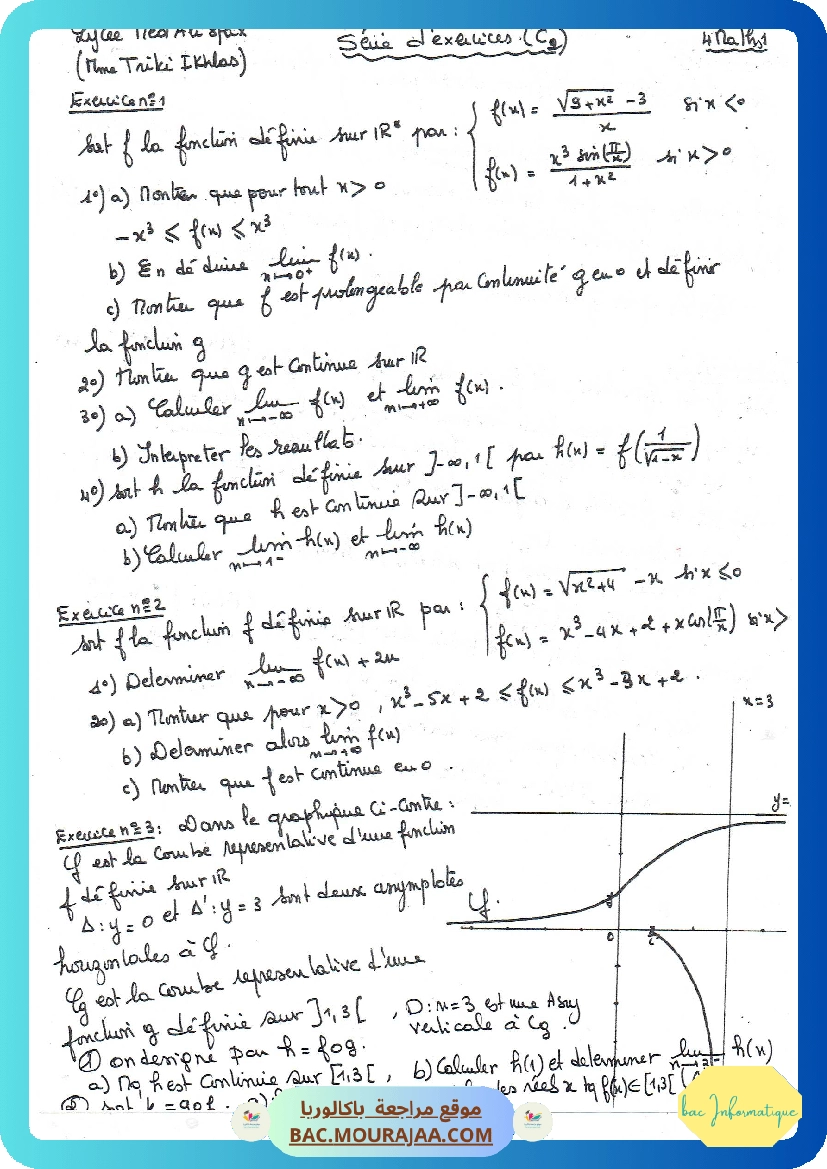 Lycée Hedi
(Mme Triki Ikhlas)
Série d'exercices (C2)
4 Maths1
Exercice n°1
Soit f la fonction définie sur IR* par : { f(x) = (√(9+x²) - 3)/x si x < 0
f(x) = (x³ sin(π/x))/(1+x²) si x > 0
1°) a) Montrer que pour tout x > 0
-x³ ≤ f(x) ≤ x³
b) En déduire lim x→0⁺ f(x).
c) Montrer que f est prolongeable par continuité g en 0 et définir
la fonction g
2°) Montrer que g est continue sur IR
3°) a) Calculer lim x→-∞ f(x) et lim x→+∞ f(x).
b) Interpreter les resultats.
4°) soit h la fonction définie sur ]-∞,1[ par h(x) = f(1/√(1-x))
a) Montrer que h est continue sur ]-∞,1[
b) Calculer lim x→1⁻ h(x) et lim x→-∞ h(x)
Exercice n°2
soit f la fonction f définie sur IR par : { f(x) = √(x²+4) - x si x ≤ 0
f(x) = x³ - 4x + 2 + x cos(π/x) si x >
1°) Determiner lim x→-∞ f(x) + 2x
2°) a) Montrer que pour x > 0, x³ - 5x + 2 ≤ f(x) ≤ x³ - 3x + 2.
b) Determiner alors lim x→+∞ f(x)
c) Montrer que f est continue en 0.
x=3
y=
Exercice n°3 : Dans le graphique ci-contre :
Cf est la courbe representative d'une fonction
f définie sur IR
Δ : y = 0 et Δ' : y = 3 sont deux asymptotes
horizontales à Cf.
Cf.
0
1
Cg est la courbe representative d'une
fonction g définie sur ]1,3[, D : x=3 est une Asy
verticale à Cg.
① on designe par h = fog.
a) Mq h est continue sur [1,3[, b) Calculer h(1) et determiner lim x→3⁻ h(x)
② soit = gof. les réels x tq f(x)∈[1,3[
bac Informatique
موقع مراجعة باكالوريا
BAC.MOURAJAA.COM